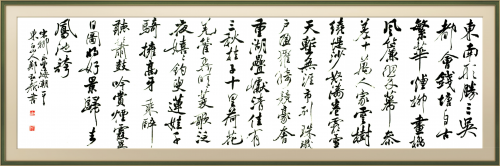 東南形勝三吳
都會錢塘自古
繁華煙柳畫橋
風簾翠幕參
差十萬人家雲樹
繞堤沙怒濤卷霜雪
天塹無涯市列珠璣
戶盈羅綺競豪奢
重湖疊巘清佳有
三秋桂子十里荷花
羌管弄晴菱歌泛
夜嬉嬉釣叟蓮娃千
騎擁高牙乘醉
聽簫鼓吟賞煙霞異
日圖將好景歸去
鳳池誇